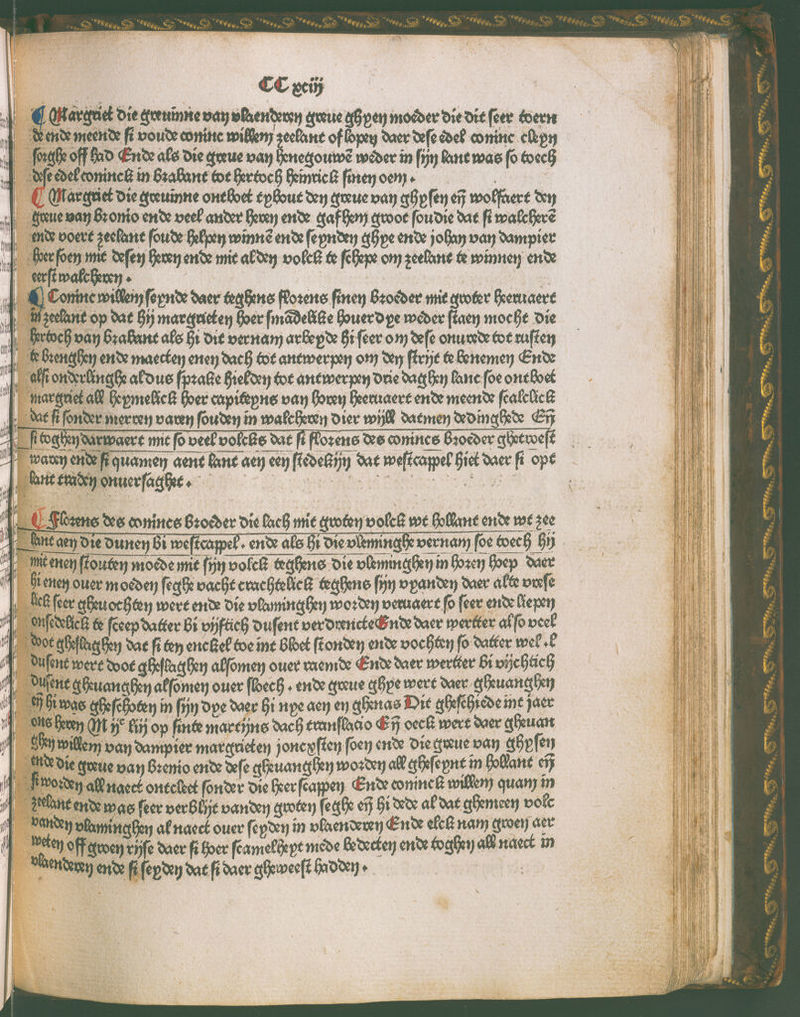 CC xciij
Margriet die greuinne van vlaenderen greue ghyen moeder die dit seer toern
de ende meende si woude coninc willem zeelant of lopen daer dese edel coninc cleyn
sorghe off had Ende als die greue van henegouwē weder in sijn lant was so toech
dese edel coninck in brabant tot hertoch heinrick sinen oem.
Margriet die greuinne ontboet tybout den greue van ghysen eñ wolfaert den
greue van bronio ende veel ander heren ende gaf hem groot soudie dat si walcherē
ende voert zeelant soude helpen winnē ende seynden ghye ende johan van dampier
hoer soen mit desen heren ende mit al den volck te schepe om zeelant te winnen ende
eerst walcheren.
Coninc willem seynde daer teghens florens sinen broeder mit groter heeruaert
in zeelant op dat hij margrieten hoer smadelike houerdye weder staen mocht die
hertoch van brabant als hi dit vernam arbeyde hi seer om dese onurede tot rusten
te brenghen ende maecten enen dach tot antwerpen om den strijt te benemen Ende
alsi onderlinghe aldus sprake hielden tot antwerpen drie daghen lanc soe ontboet
margriet all heymelick hoer capiteyns van horen heeruaert ende meende scalclick
dat si sonder merren varen souden in walcheren dier wijll datmen dedinghede Eñ
si toghen darwaert mit so veel volcks dat si florens des conincs broeder ghetwest
waren ende si quamen aent lant aen een stedekijn dat westcappel hiet daer si opt
lant traden onuersaghet.
Florens des conincs broeder die lach mit groten volck wt hollant ende wt zee
lant aen die dunen bi westcappel. ende als hi die vleminghe vernam soe toech hij
mit enen stouten moede mit sijn volck teghens die vleminghen in horen hoep daer
hi enen ouer moeden seghe vacht crachtelick teghens sijn vyanden daer alte vrese
lick seer gheuochten wert ende die vlaminghen worden veruaert so seer ende liepen
onsedelick te sceep datter bi vijftich dusent verdrencte Ende daer wertter also veel
doot gheslaghen dat si ten enckel toe int bloet stonden ende vochten so datter wel .l
dusent wert doot gheslaghen alsomen ouer raemde Ende daer wertter bi vijchtich
dusent gheuanghen alsomen ouer sloech. ende greue ghye wert daer gheuanghen
eñ hi was gheschoten in sijn dye daer hi nye aen en ghenas Dit gheschiede int jaer
ons heren M ijᶜ liij op sinte martijns dach translacio Eñ oeck wert daer gheuan
ghen willem van dampier margrieten joncxsten soen ende die greue van ghysen
ende die greue van brenio ende dese gheuanghen worden all gheseynt in hollant eñ
si worden all naect ontcleet sonder die heerscappen Ende coninck willem quam in
zeelant ende was seer verblijt vanden groten seghe eñ hi dede al dat ghemeen volc
vanden vlaminghen al naect ouer seynden in vlaenderen Ende elck nam groen aer
weten off groen rijse daer si hoer scamelheyt mede bedecten ende toghen all naect in
vlaenderen ende si seyden dat si daer gheweest hadden.